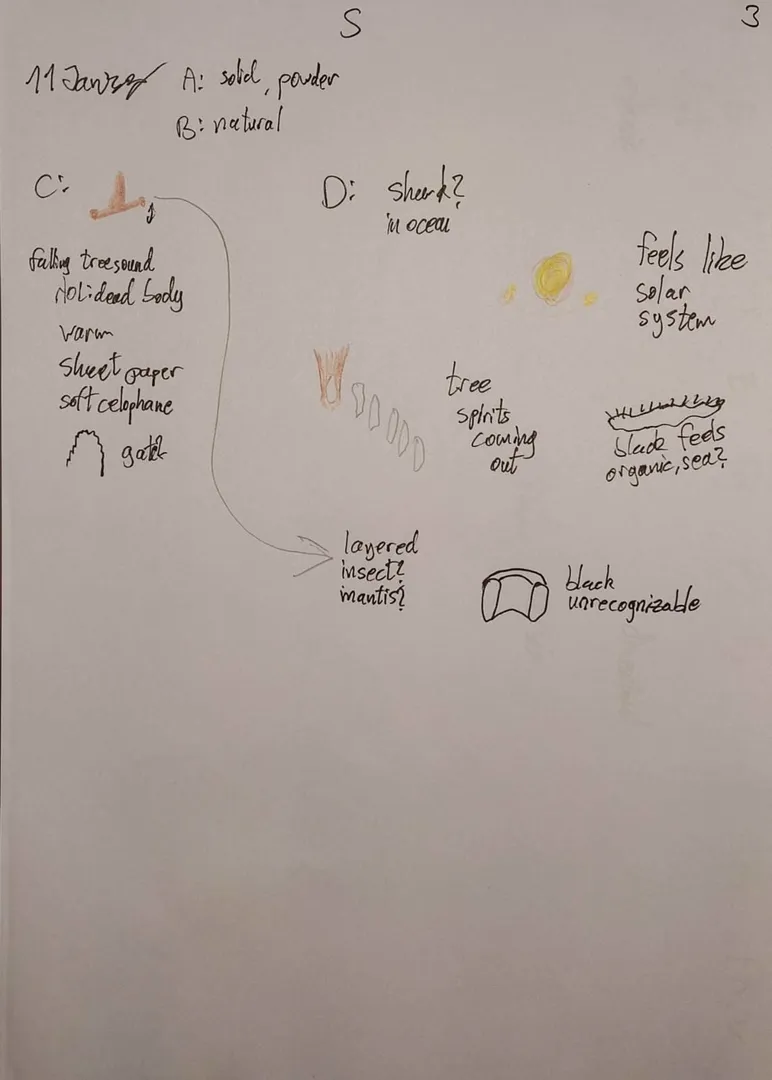 S
3
11 Jan
A: solid, powder
B: natural
C:
falling tree sound
AOL: dead body
warm
sheet paper
soft celophane
D: shark?
in ocean
feels like
solar
system
tree
spirits
coming
out
black feels
organic, sea?
layered
insect?
mantis?
black
unrecognizable